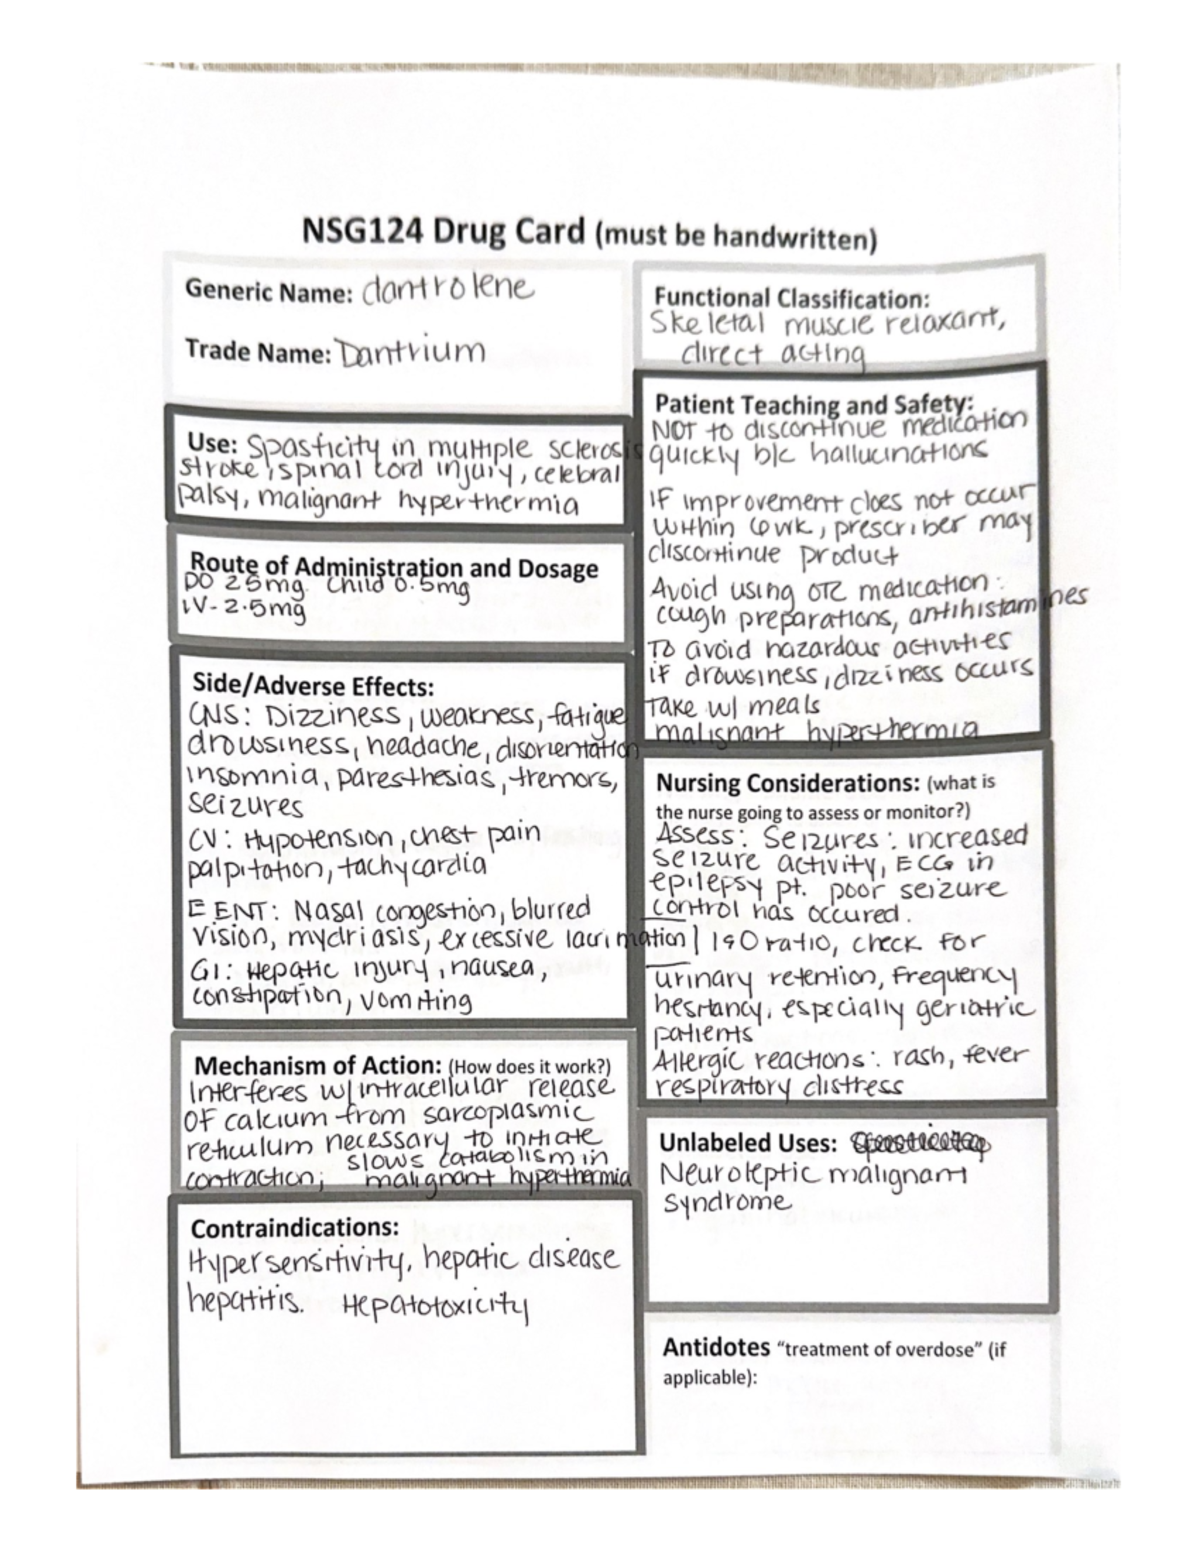 NSG124 Drug Card (must be handwritten)
Generic Name: dantrolene
Trade Name: Dantrium
Use: Spasticity in multiple sclerosis
stroke, spinal cord injury, celebral
palsy, malignant hyperthermia
Route of Administration and Dosage
PO 25mg. Child 0.5mg
IV-2.5mg
Side/Adverse Effects:
CNS: Dizziness, weakness, fatigue
drowsiness, headache, disorientation
insomnia, paresthesias, tremors,
seizures
CV: Hypotension, chest pain
palpitation, tachycardia
EENT: Nasal congestion, blurred
vision, mydriasis, excessive lacrimation
GI: Hepatic injury, nausea,
constipation, vomiting
Mechanism of Action: (How does it work?)
Interferes w/ intracellular release
OF calcium from sarcoplasmic
reticulum necessary to initiate
contraction; slows catabolism in
malignant hyperthermia
Contraindications:
Hypersensitivity, hepatic disease
hepatitis. Hepatotoxicity
Functional Classification:
Skeletal muscle relaxant,
direct acting
Patient Teaching and Safety:
NOT to discontinue medication
quickly b/c hallucinations
IF improvement does not occur
within 6wk, prescriber may
discontinue product
Avoid using OTC medication:
cough preparations, antihistamines
To avoid hazardous activities
if drowsiness, dizziness occurs
Take w/ meals
malignant hyperthermia
Nursing Considerations: (what is
the nurse going to assess or monitor?)
Assess: Seizures: increased
seizure activity, ECG in
epilepsy pt. poor seizure
control has occured.
I&O ratio, check for
urinary retention, frequency
hesitancy, especially geriatric
patients
Allergic reactions: rash, fever
respiratory distress
Unlabeled Uses:
Neuroleptic malignant
syndrome
Antidotes "treatment of overdose" (if
applicable):